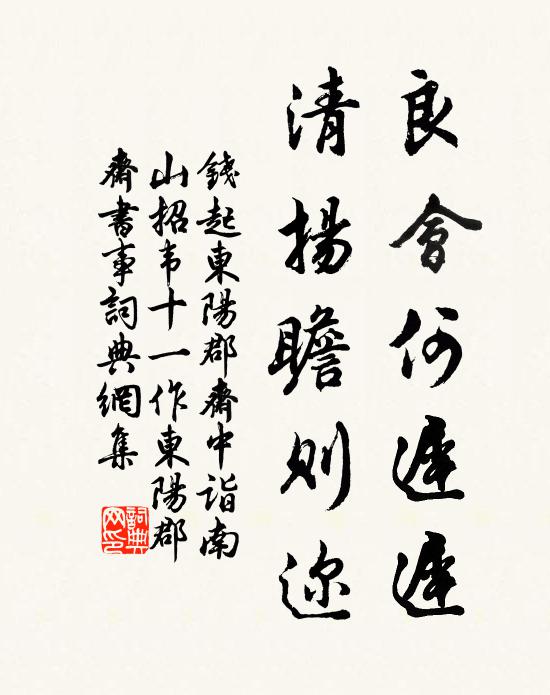 良會何遲遲
清揚瞻則邇
錢起東陽郡齋中詣南
山招韦十一作東陽郡
齋書事詞典網集
詞典
网印